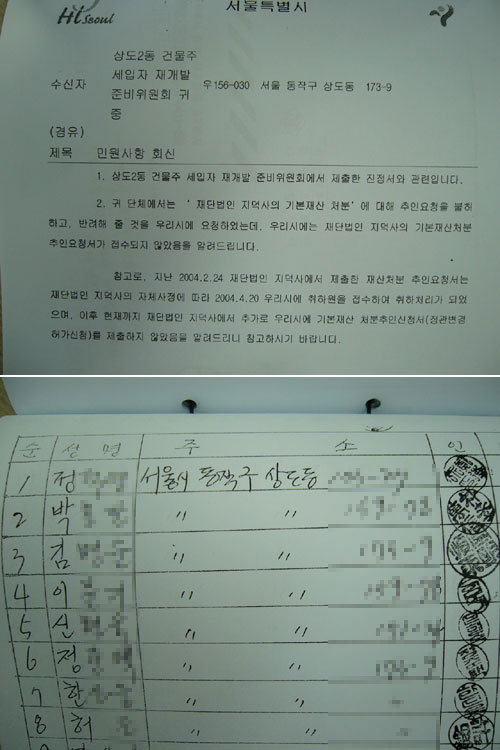 Hi Seoul
서울특별시
상도2동 건물주
세입자 재개발
수신자
우156-030 서울 동작구 상도동 173-9
준비위원회 귀
중
(경유)
제목 민원사항 회신
1. 상도2동 건물주 세입자 재개발 준비위원회에서 제출한 진정서와 관련입니다.
2. 귀 단체에서는 ' 재단법인 지덕사의 기본재산 처분'에 대해 추인요청을 불허
하고, 반려해 줄 것을 우리시에 요청하였는데, 우리시에는 재단법인 지덕사의 기본재산처분
추인요청서가 접수되지 않았음을 알려드립니다.
참고로, 지난 2004.2.24 재단법인 지덕사에서 제출한 재산처분 추인요청서는
재단법인 지덕사의 자체사정에 따라 2004.4.20 우리시에 취하원을 접수하여 취하처리가 되었
으며, 이후 현재까지 재단법인 지덕사에서 추가로 우리시에 기본재산 처분추인신청서(정관변경
허가신청)를 제출하지 않았음을 알려드리니 참고하시기 바랍니다.
순 성명 주 소 인
1 정 서울시 동작구 상도동
2 박 〃 〃
3 김 〃 〃
4 이 〃 〃
5 신 〃 〃
6 정 〃 〃
7 한 〃 〃
8 허 〃 〃